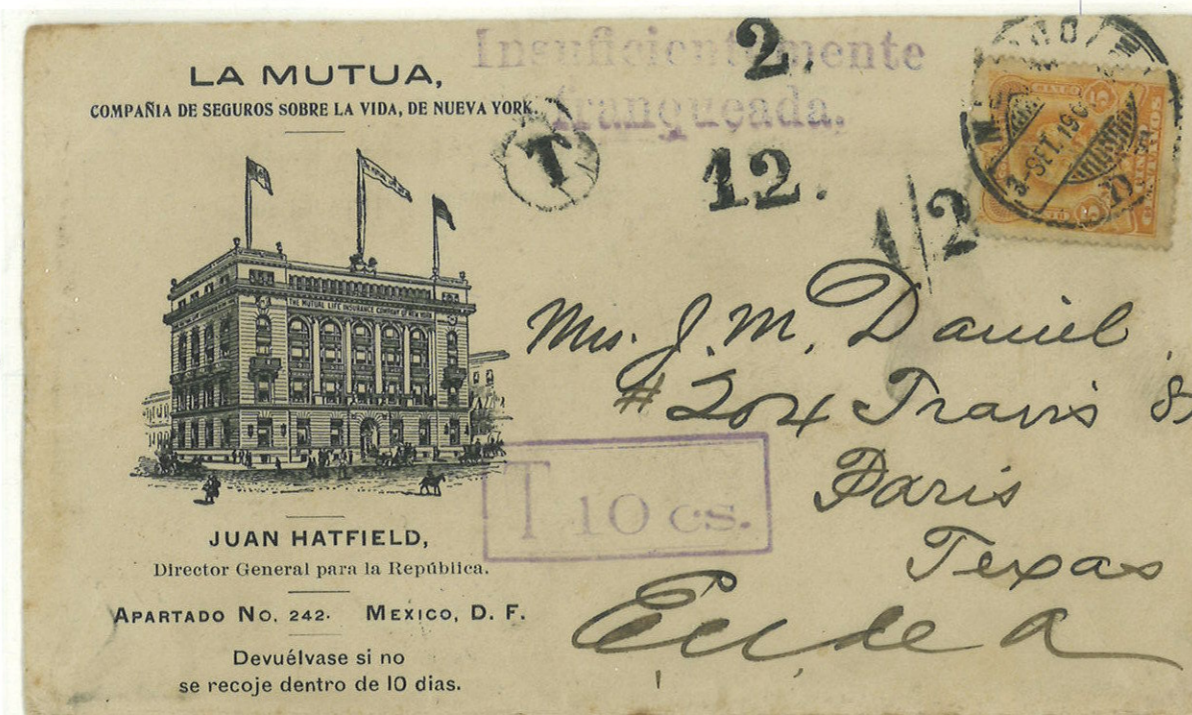 LA MUTUA,
COMPAÑIA DE SEGUROS SOBRE LA VIDA, DE NUEVA YORK.
THE MUTUAL LIFE INSURANCE COMPANY OF NEW YORK
JUAN HATFIELD,
Director General para la República.
APARTADO No. 242. MEXICO, D. F.
Devuélvase si no
se recoje dentro de 10 dias.
Insuficientemente
franqueada.
2.
T
12.
1/2
Mrs. J. M. Daniel
# 204 Travis St
Paris
Texas
E U de A
T 10 cs.
SET. 190
5
CENTAVOS